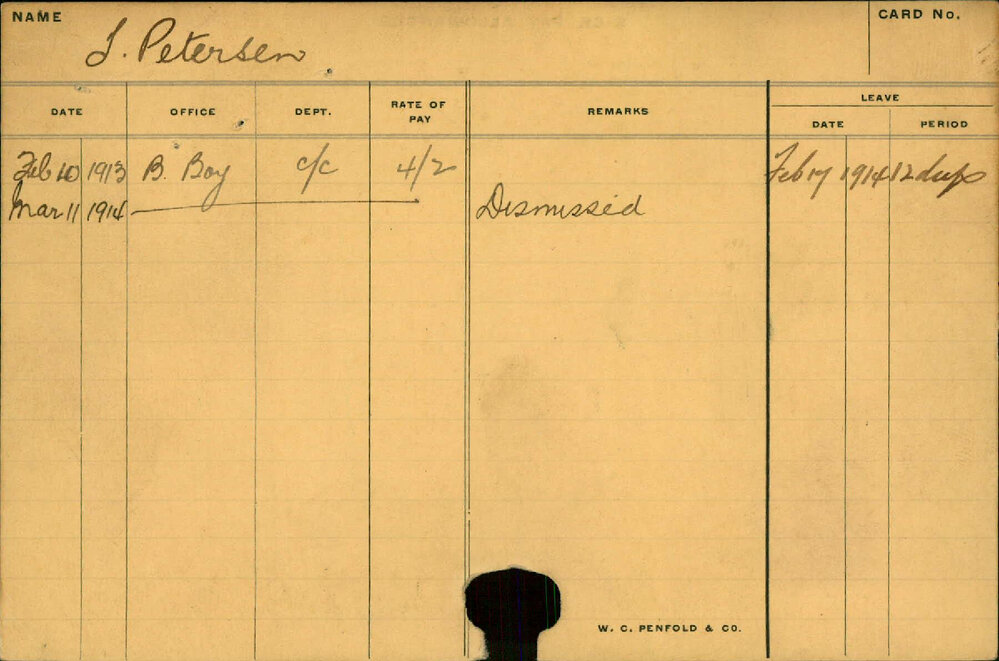 NAME
CARD No.
Petersen
DATE OFFICE DEPT. RATE OF PAY REMARKS LEAVE
DATE PERIOD
Feb 10 1913 B. Boy c/c 4/2 Feb 17 1914 12 days
Mar 11 1914 Dismissed
W. C. PENFOLD & CO.